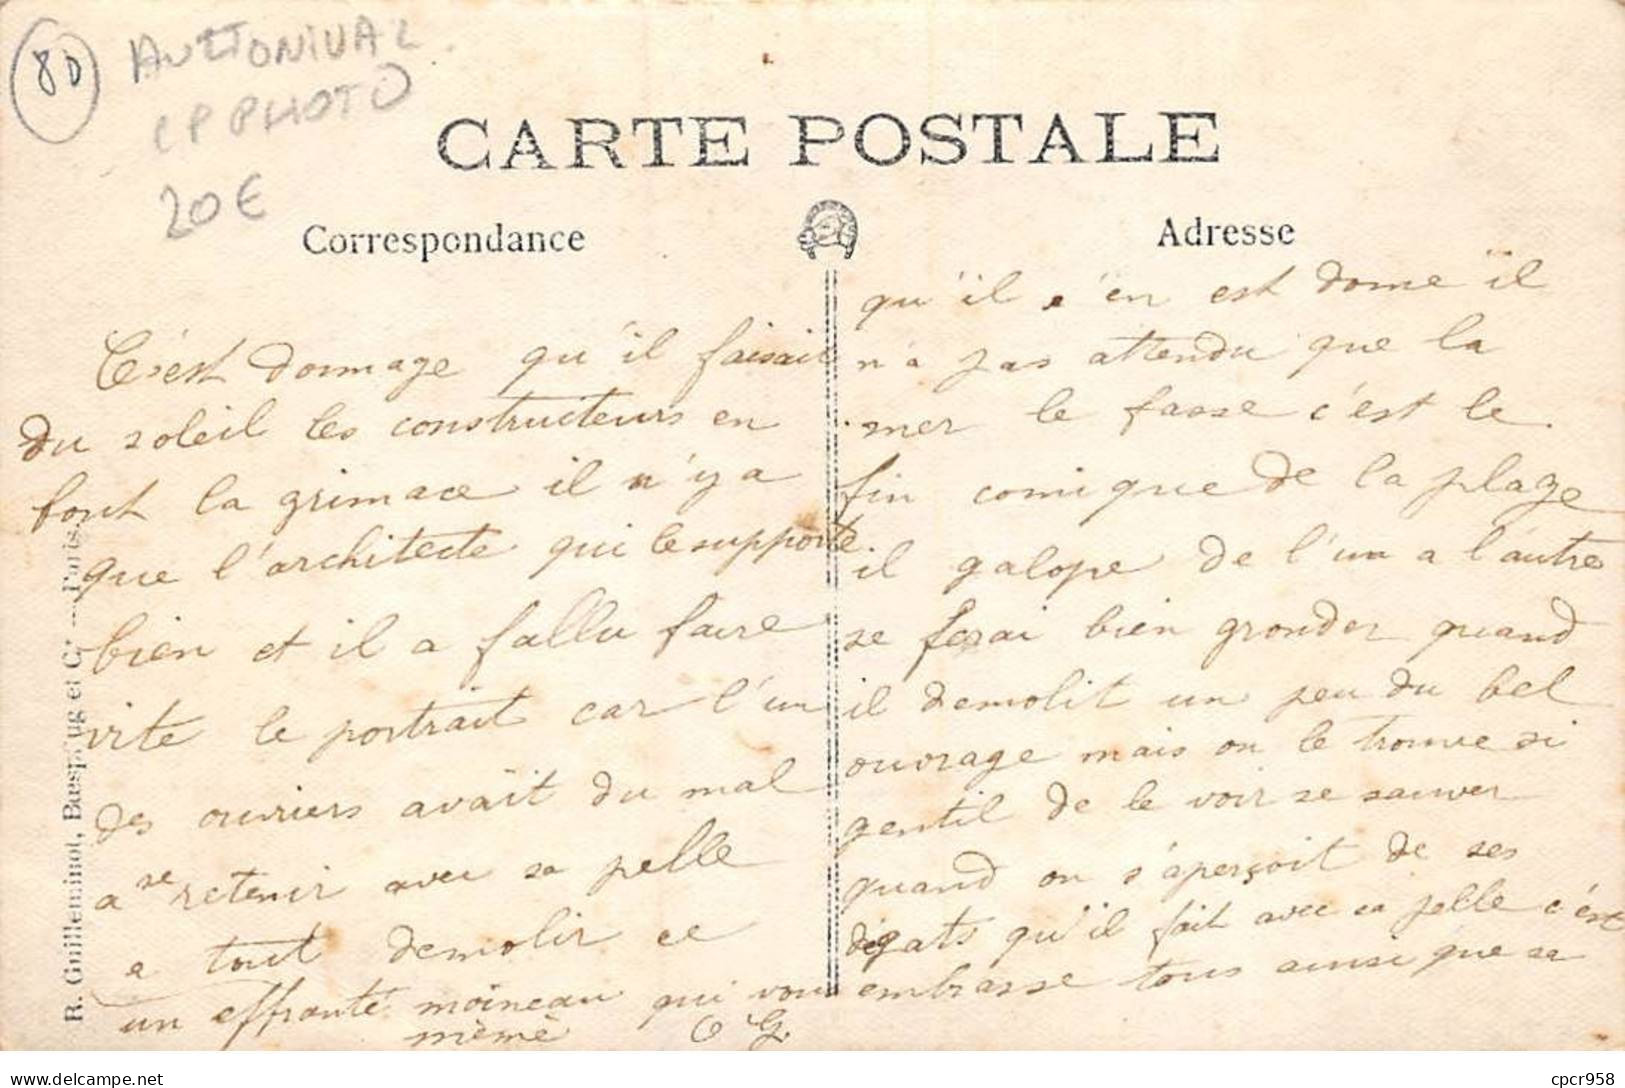 80
AULTONIVAL
CP PHOTO
20€
CARTE POSTALE
Correspondance
Adresse
C'est domage qu'il faisait
du soleil les constructeurs en
font la grimace il n'y a
que l'architecte qui le supporte
bien et il a fallu faire
vite le portrait car l'un
des ouvriers avait du mal
a se retenir avec sa pelle
a tout demolir ce
qu'il s'en est donne il
n'a pas attendu que la
mer le fasse c'est le
fin comique de la plage
il galope de l'un a l'autre
se ferai bien gronder quand
il demolit un peu du bel
ouvrage mais on le trouve si
gentil de le voir se sauver
quand on s'aperçoit de ses
dégats qu'il fait avec sa pelle c'est
un effronté moineau qui vous embrasse tous ainsi que sa
mémé
G.
R. Guilleminot, Bœspflug et Cie — Paris.
cpcr958